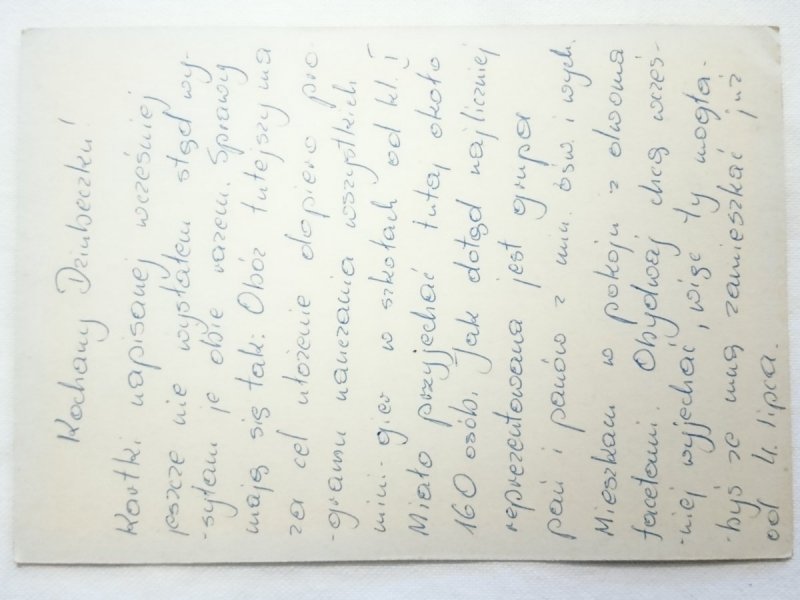 Kochany Dziubeczku!
Kartki napisanej wcześniej
jeszcze nie wysłałem stąd wy-
-syłam je obie razem. Sprawy
mają się tak: Obóz tutejszy ma
za cel ułożenie dopiero pro-
-gramu nauczania wszystkich
mini-gier w szkołach od kl. I
Miało przyjechać tutaj około
160 osób. Jak dotąd najliczniej
reprezentowana jest grupa
pań i panów z min. ośw. i wych.
Mieszkam w pokoju z dwoma
facetami. Obydwaj chcą wcześ-
-niej wyjechać, więc ty mogła-
-byś ze mną zamieszkać już
od 4. lipca.